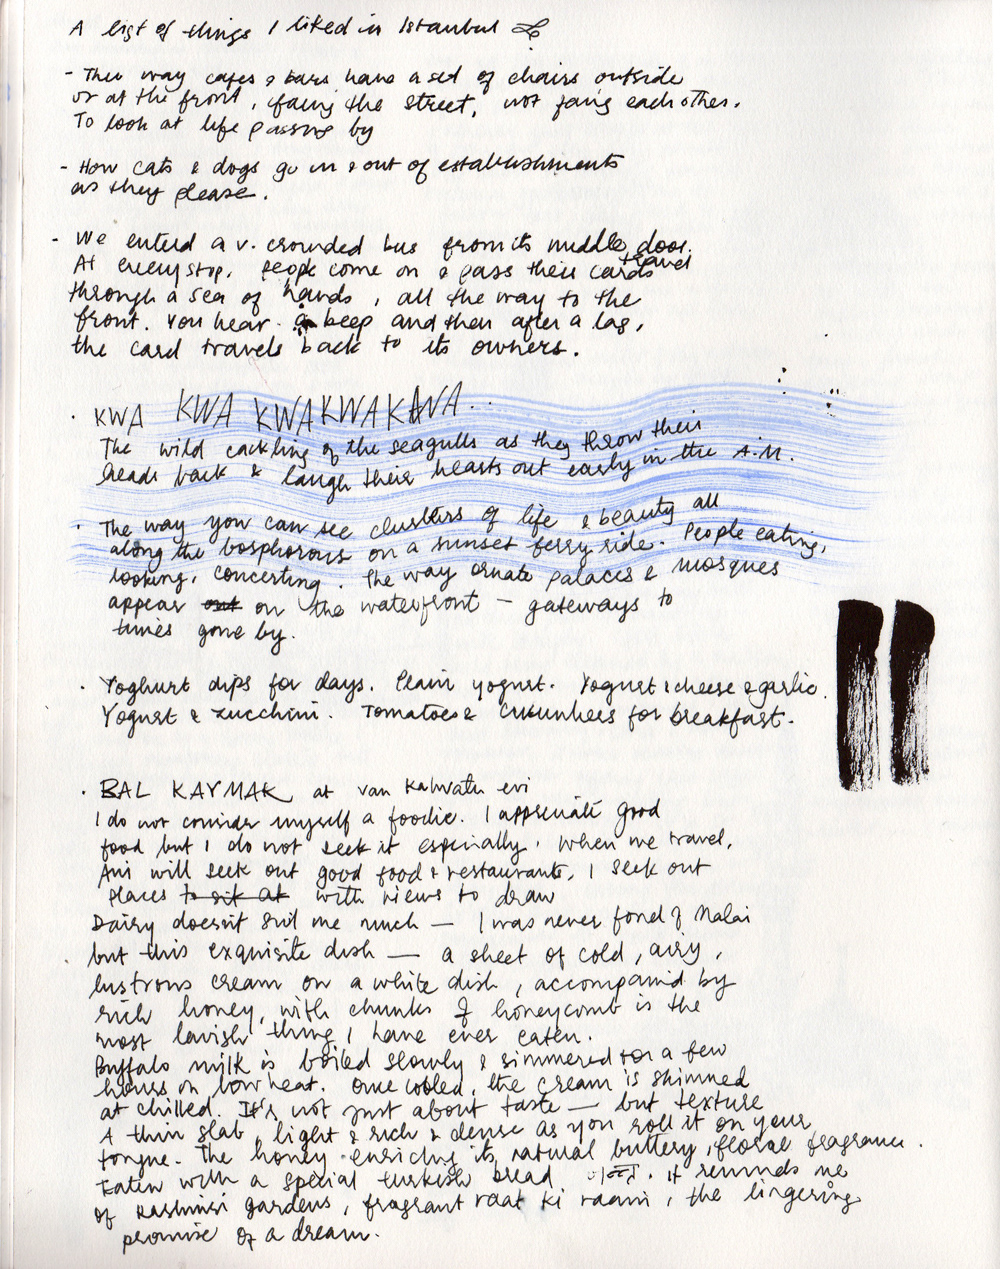 A list of things I liked in Istanbul
- The way cafes & bars have a set of chairs outside
or at the front, facing the street, not facing each other.
To look at life passing by
- How cats & dogs go in & out of establishments
as they please.
- We entered a v. crowded bus from its middle door.
At every stop, people come on & pass their travel cards
through a sea of hands, all the way to the
front. You hear a beep and then after a lag,
the card travels back to its owners.
· KWA KWA KWA KWA KAWA...
The wild cackling of the seagulls as they throw their
heads back & laugh their hearts out early in the A.M.
· The way you can see clusters of life & beauty all
along the bosphorous on a sunset ferry ride. People eating,
looking, concerting. The way ornate palaces & mosques
appear out on the waterfront – gateways to
times gone by.
· Yoghurt dips for days. Plain yogurt. Yogurt & cheese & garlic.
Yogurt & zucchini. Tomatoes & cucumbers for breakfast.
· BAL KAYMAK at van kahvaltı evi
I do not consider myself a foodie. I appreciate good
food but I do not seek it especially. When we travel,
Ani will seek out good food & restaurants, I seek out
places to sit at with views to draw
Dairy doesn't suit me much — I was never fond of Malai
but this exquisite dish — a sheet of cold, airy,
lustrous cream on a white dish, accompanied by
rich honey, with chunks of honeycomb is the
most lavish thing I have ever eaten.
Buffalo milk is boiled slowly & simmered for a few
hours on low heat. Once cooled, the cream is skimmed
at chilled. It's not just about taste — but texture
A thin slab, light & rich & dense as you roll it on your
tongue. The honey enriching its natural buttery, floral fragrance.
Eaten with a special turkish bread. it reminds me
of Kashmiri gardens, fragrant raat ki raani, the lingering
promise of a dream.